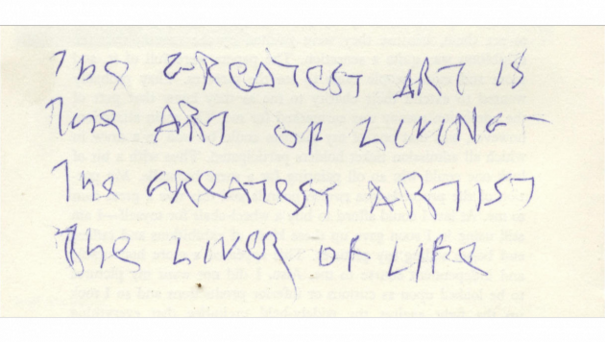 The GREATEST ART IS
The ART OF LIVING—
The GREATEST ARTIST
The LIVER OF LIFE